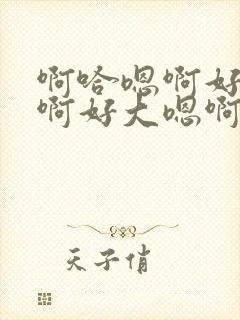 啊哈嗯啊好
啊好大嗯啊
天子俏